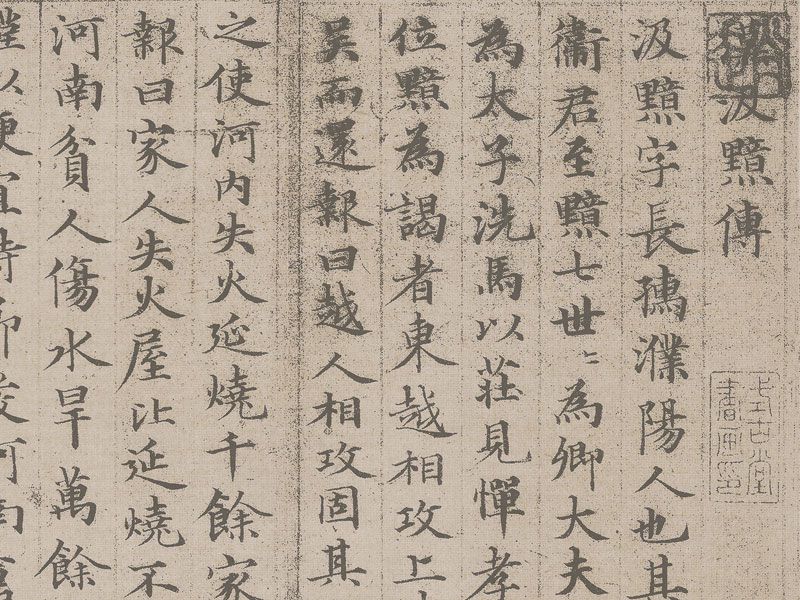 汲黯傳
汲黯字長孺濮陽人也其
衞君至黯七世〻為卿大夫
為太子洗馬以莊見憚孝
位黯為謁者東越相攻上
吳而還報曰越人相攻固其
之使河內失火延燒千餘家
報曰家人失火屋比延燒不
河南貧人傷水旱萬餘
謹以便宜持節發河南倉